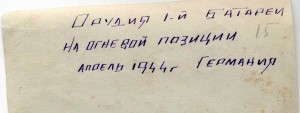 ОРУДИЯ 1-Й БАТАРЕИ
НА ОГНЕВОЙ ПОЗИЦИИ 15
АПРЕЛЬ 1944г ГЕРМАНИЯ